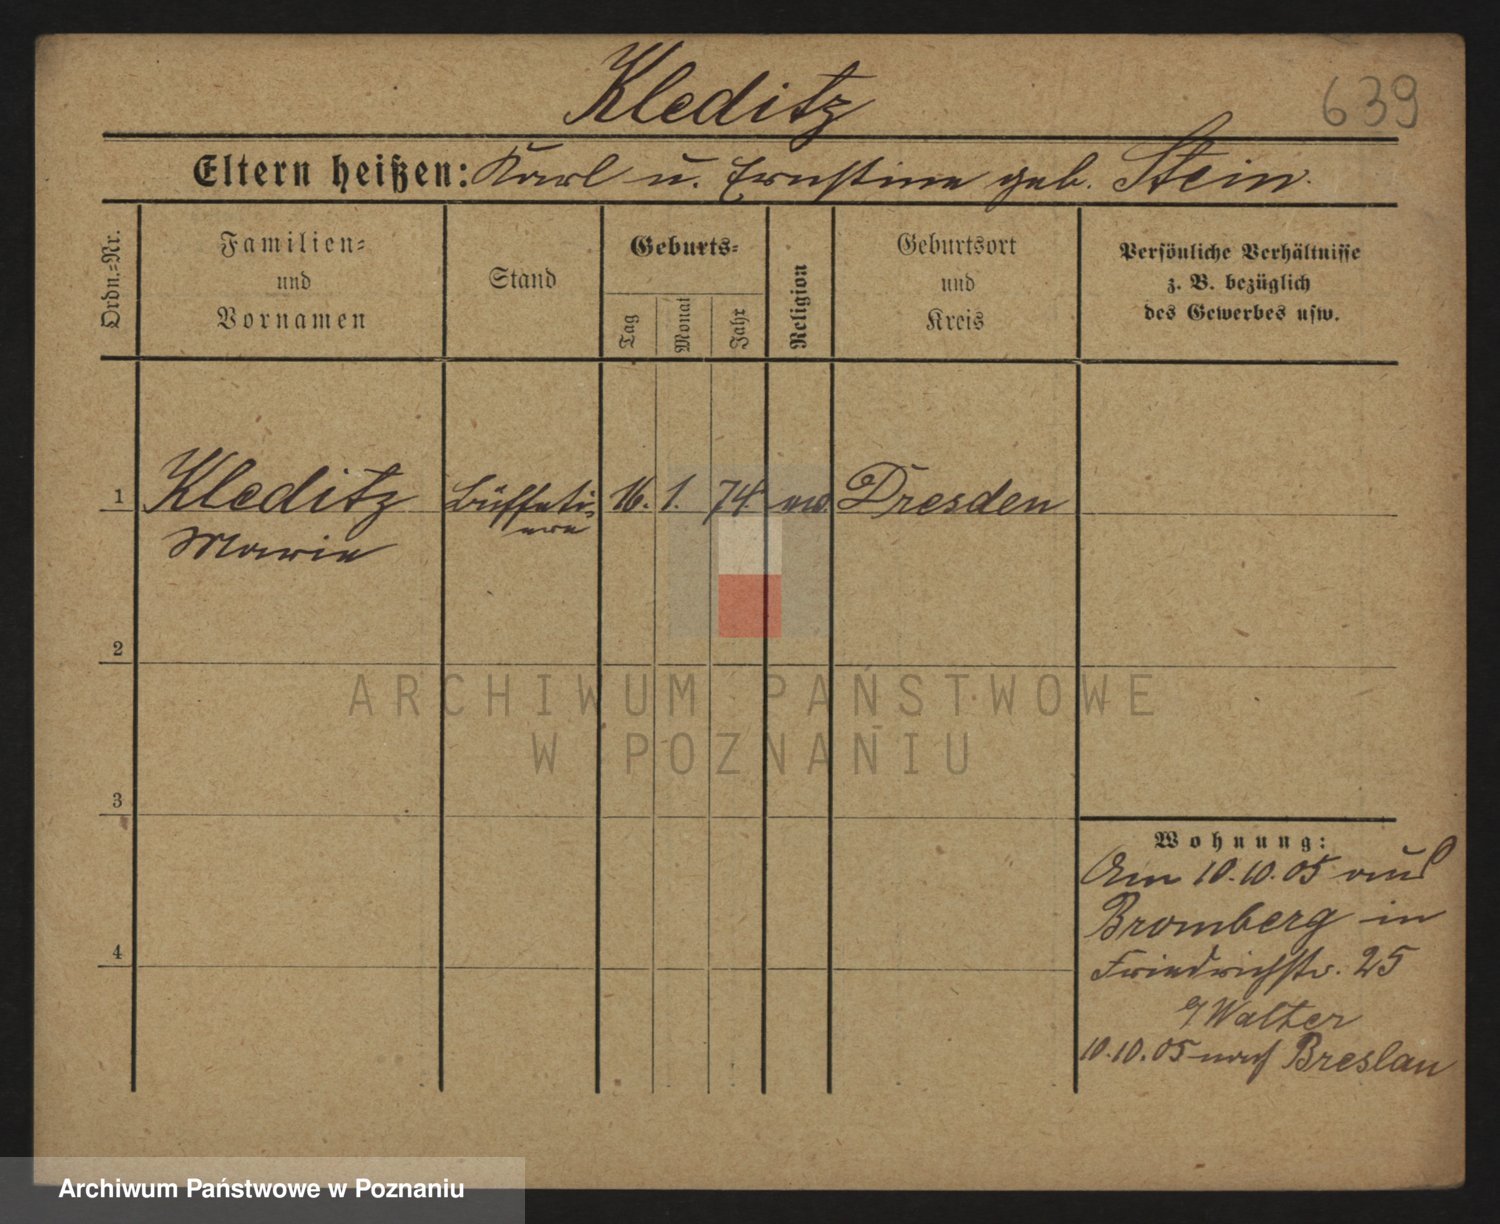 Kleditz
639
Eltern heißen: Karl u. Ernstine geb. Stein.
Ordn.-Nr.
Familien-
und
Vornamen
Stand
Geburts-
Tag
Monat
Jahr
Religion
Geburtsort
und
Kreis
Persönliche Verhältnisse
z. B. bezüglich
des Gewerbes usw.
1 Kleditz Büffeti- 16. 1. 74. Dresden
Marie
2
3
4
Wohnung:
Am 10.10.05 aus
Bromberg in
Friedrichstr. 25
Walter
10.10.05 nach Breslau
ARCHIWUM PAŃSTWOWE
W POZNANIU
Archiwum Państwowe w Poznaniu